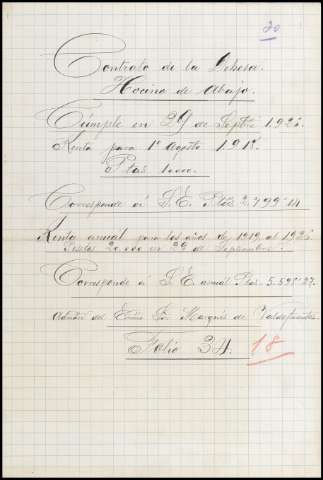 20
Contrato de la Dehesa
Hocina de Abajo.
Cúmple en 29 de Septbre 1926.
Renta para 1º Agosto 1918.
Ptas
Corresponde á S. E. Ptas 2.799'14
Renta anual para los años de 1919 al 1926
Pesetas 20.000 en 29 de Septiembre.
Corresponde á S. E. anual Ptas. 5.598'27.
del Exmo Sr. Marqués de Valdefuentes
Folio 34.
18